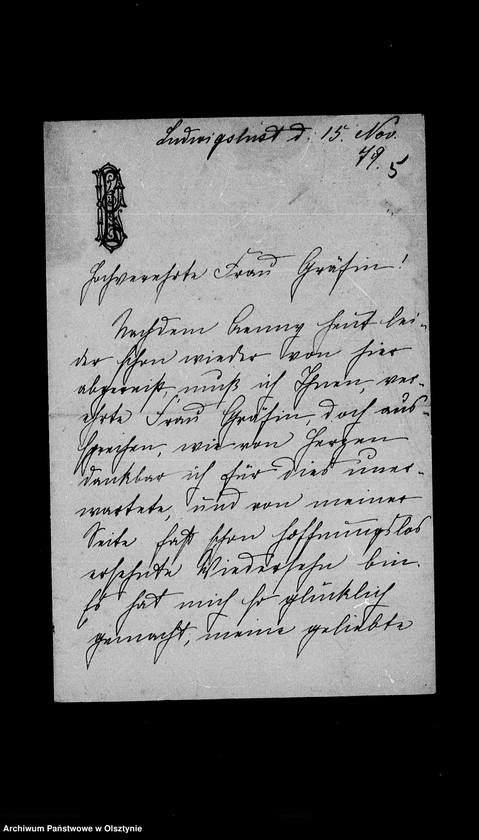 Ludwigslust d. 15. Nov.
79.
5
Hochverehrte Frau Gräfin!
Nachdem Aenny heut lei-
der schon wieder von hier
abgereist, muß ich Ihnen, ver-
ehrte Frau Gräfin, doch aus-
sprechen, wie von Herzen
dankbar ich für dies uner-
wartete, und von meiner
Seite fast schon hoffnungslos
ersehnte Wiedersehn bin.
Es hat mich so glücklich
gemacht, meine geliebte
Archiwum Państwowe w Olsztynie